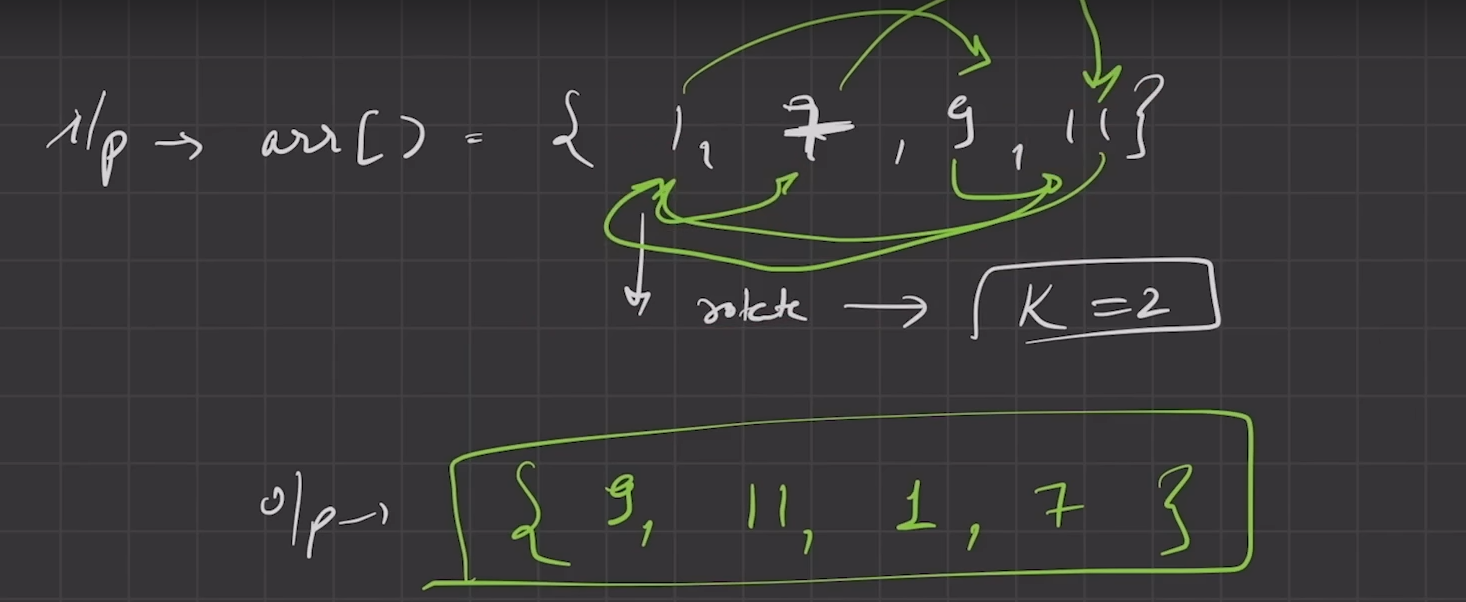 i/p → arr[] = { 1, 7, 9, 11}
rotate → K = 2
o/p → { 9, 11, 1, 7 }